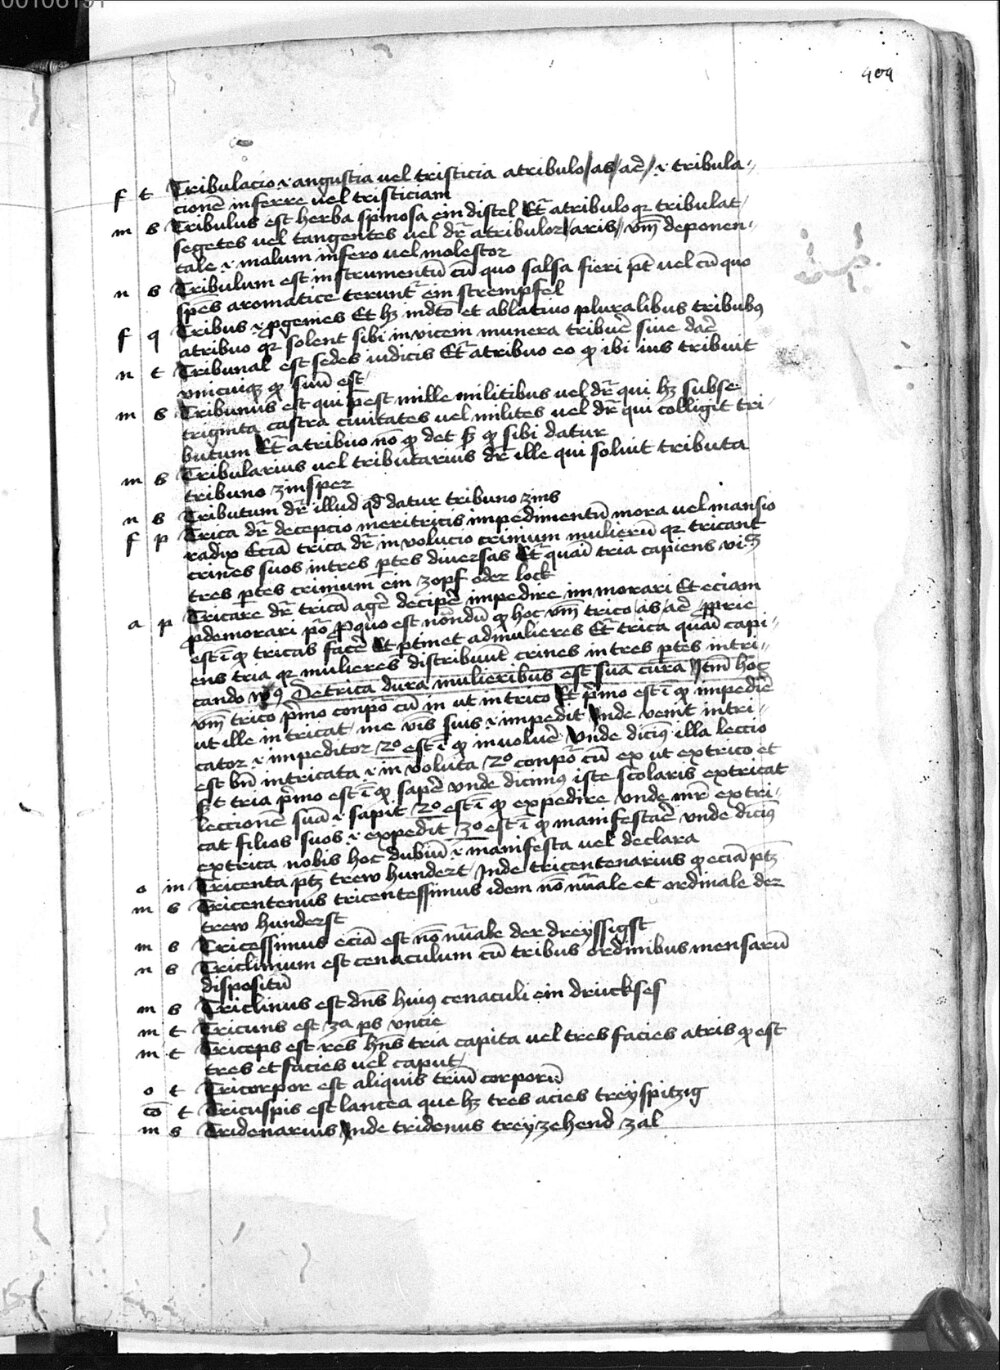 00106191
404
f t Tribulacio .i. angustia uel tristicia a tribulo / as / aē / .i. tribula-
cionē inferre uel tristiciam
m s Tribulus est herba spinosa ein distel Et a tribulo qr tribulat
segetes uel tangentes uel dr a tribulor / aris / vm deponen-
tale .i. malum infero uel molestor
n s Tribulum est instrumentū cū quo salsa fieri pt uel cū quo
spēs aromatice terunt ein strempfel
f q Tribus .i. pgenies Et hz in dto et ablatiuo pluralibus tribubus
a tribuo qr solent sibi inuicem munera tribue siue dare
n t Tribunal est sedes iudicis Et a tribuo eo qp ibi ius tribuit
vnicuiqz qp suū est
m s Tribunus est qui pest mille militibus uel dr qui hz sub se
triginta castra ciuitates uel milites uel dr qui colligit tri-
butum Et a tribuo nō qp det sz qp sibi datur
m s Tribularius uel tributarius dr ille qui soluit tributa
tribuno zinsper
n s Tributum dr illud qd datur tribuno zins
f p Trica dr decepcio meritricis impedimentū mora uel mansio
radix Eciā trica dr inuolucio crinium mulierū qr tricant
crines suos in tres ptes diuersas Et quasi tria capiens vl
tres ptes crinium ein zopf oder lock
a p Tricare dr tricā age decipe impedire immorari Et eciam
pdemorari
est .i. qp tricas face Et ptinet ad mulieres Et trica quasi capi-
ens tria qr mulieres distribuūt crines in tres ptes intri-
cando De trica dura mulieribus est sua cura Itm hoc
vm trico pmo conpo cū in ut intrico Et pmo est .i. qp impedie
ut ille intricat me vis suis .i. impedit Inde venit intri-
cator .i. impeditor 2o est .i. qp inuolue Vnde dicim illa leccio
est bn intricata .i. inuoluta 2o conpo cū ex ut extrico et
st tria pmo est .i. qp sape vnde dicimus iste scolaris extricat
leccionē suā .i. sapit 2o est .i. qp expedire vnde mr extri-
cat filios suos .i. expedit 3o est .i. qp manifestae vnde dicim
extrica nobis hoc dubiū .i. manifesta uel declara
o in Tricenta ptz trew hundert Inde tricentenarius qp eciā ptz
m s Tricentenus tricentessimus idem nō nūale et ordinale der
trew hunderst
m s Tricessimus eciā est nō nūale der dreyssigst
n s Triclinium est cenaculum cū tribus ordinibus mensarū
dispositū
m s Triclinus est dns huius cenaculi ein druckses
m t Tricuns est 3a ps vncie
m t Triceps est res hns tria capita uel tres facies a tris qp est
tres et facies uel caput
o t Tricorpor est aliquis triū corporū
cō t Tricuspis est lancea que hz tres acies treyspitzig
m s Tridenarius Inde tridenus treyzehend zal